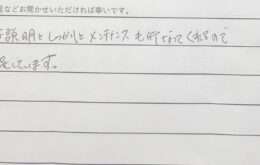 見などお聞かせいただければ幸いです。
説明としっかりと メンテナンスも行なってくれるので
しています。